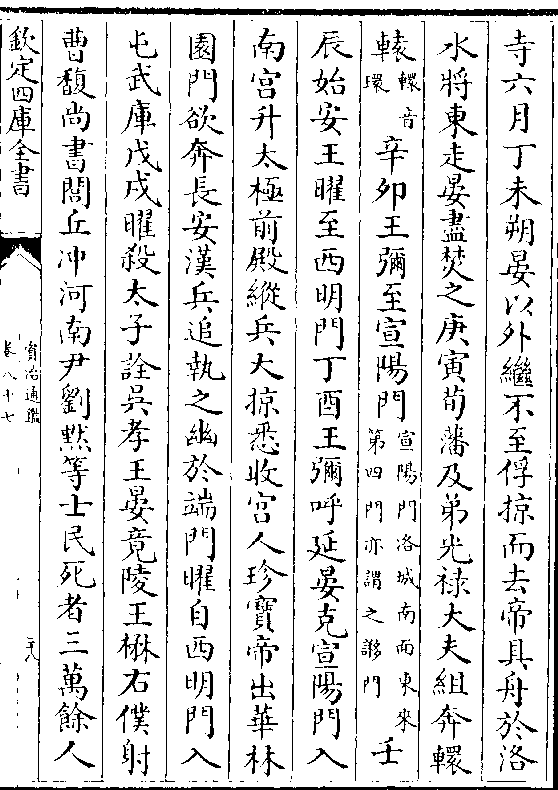 寺六月丁未朔晏以外繼不至俘掠而去帝具舟於洛
水將東走晏盡焚之庚寅荀藩及弟光祿大夫組奔轘
轅轘音環辛卯王彌至宣陽門宣陽門洛城南面東來第四門亦謂之謻門壬
辰始安王曜至西明門丁酉王彌呼延晏克宣陽門入
南宮升太極前殿縱兵大掠悉收宮人珍寶帝出華林
園門欲奔長安漢兵追執之幽於端門曜自西明門入
屯武庫戊戌曜殺太子詮吳孝王晏竟陵王楙右僕射
曹馥尚書閭丘冲河南尹劉黙等士民死者三萬餘人
欽定四庫全書
資治通鑑
卷八十七
二十八